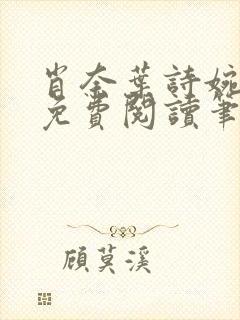 肖奈葉詩婉
免費閱讀筆
顧莫溪